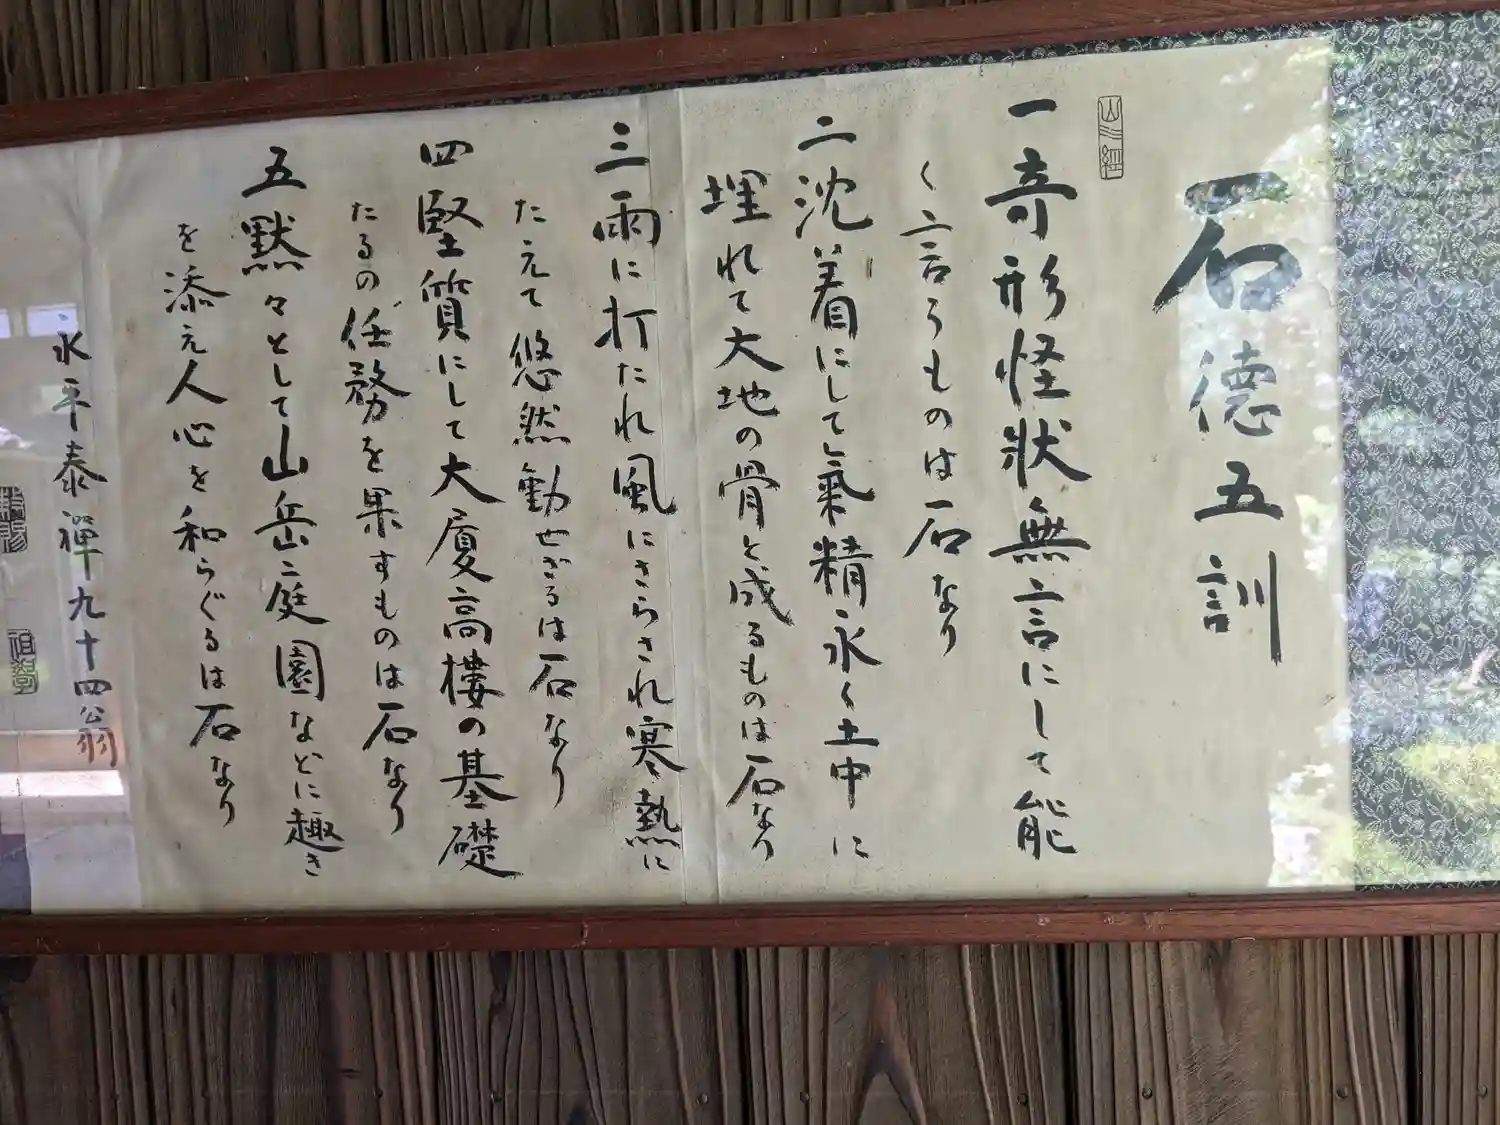 石徳五訓
山水經
一 奇形怪状無言にして能
く言うものは石なり
二 沈着にして氣精永く土中に
埋れて大地の骨と成るものは石なり
三 雨に打たれ風にさらされ寒熱に
たえて悠然動ぜざるは石なり
四 堅質にして大厦高樓の基礎
たるの任務を果すものは石なり
五 黙々として山岳庭園などに趣き
を添え人心を和らぐるは石なり
永平泰禅九十四翁